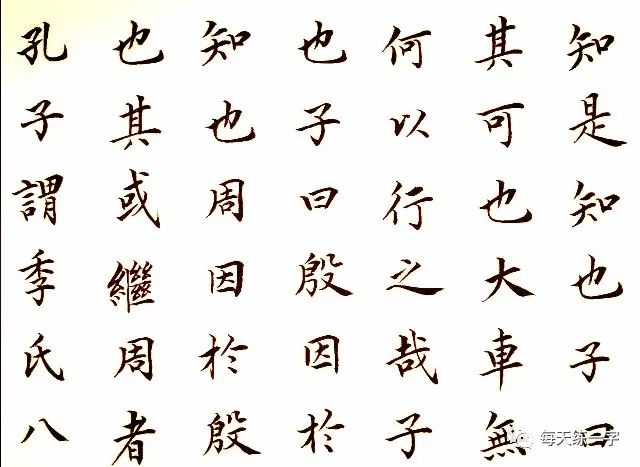 知是知也子曰
其可也大車無
何以行之哉子
也子曰殷因於
知也周因於殷
也其或繼周者
孔子謂季氏八
每天练一字